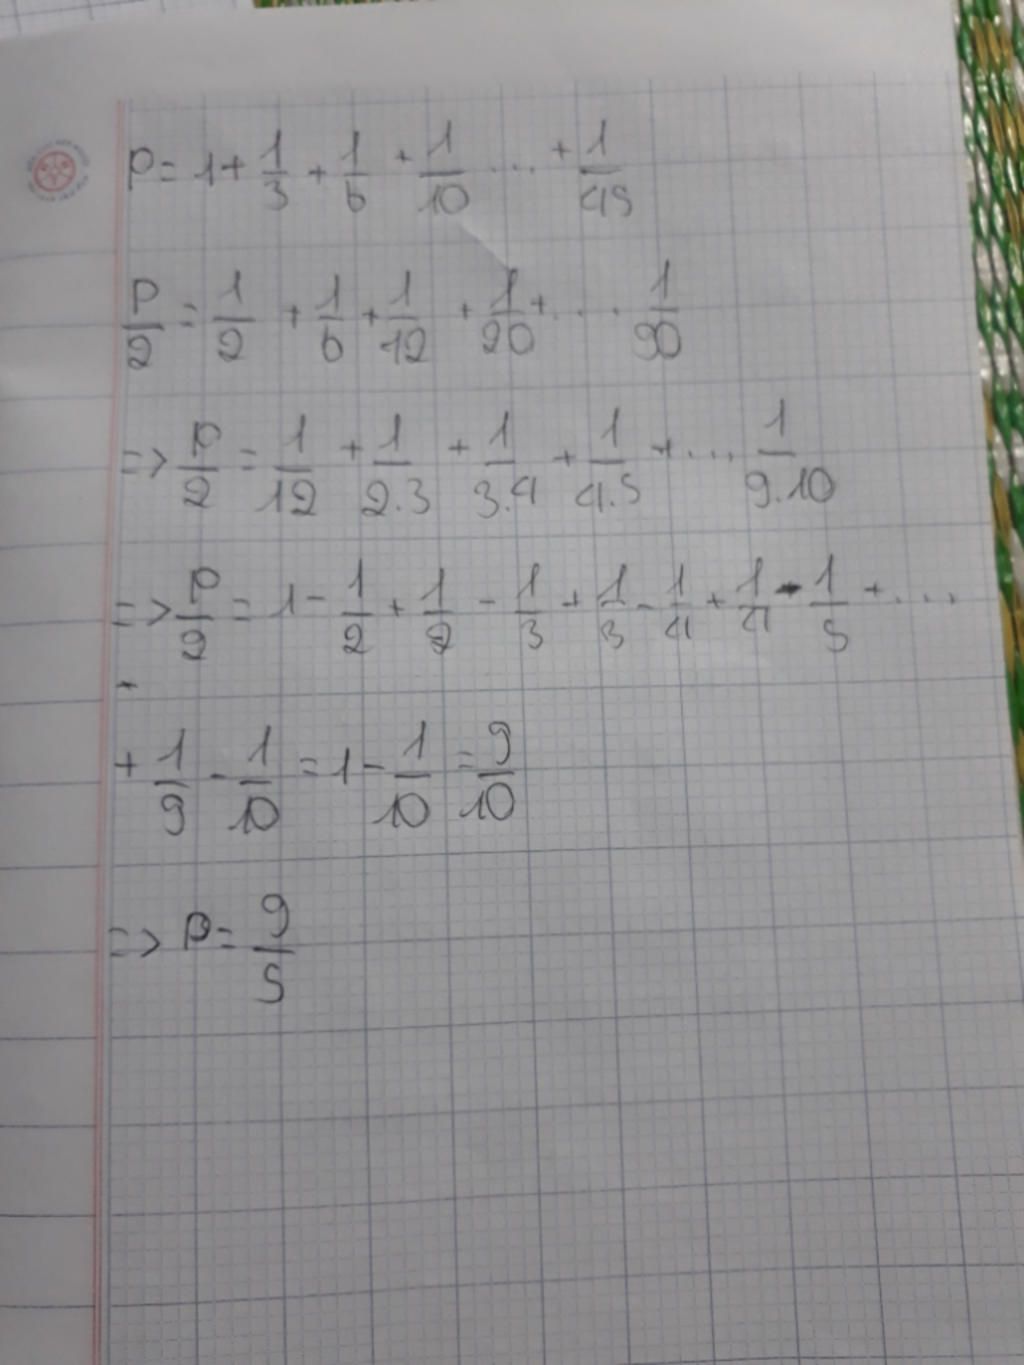 P = 1 + 1/3 + 1/6 + 1/10 ... + 1/45
P/2 = 1/2 + 1/6 + 1/12 + 1/20 + .... 1/90
=> P/2 = 1/12 + 1/2.3 + 1/3.4 + 1/4.5 + ... 1/9.10
=> P/2 = 1 - 1/2 + 1/2 - 1/3 + 1/3 - 1/4 + 1/4 - 1/5 + ....
+ 1/9 - 1/10 = 1 - 1/10 = 9/10
=> P = 9/5